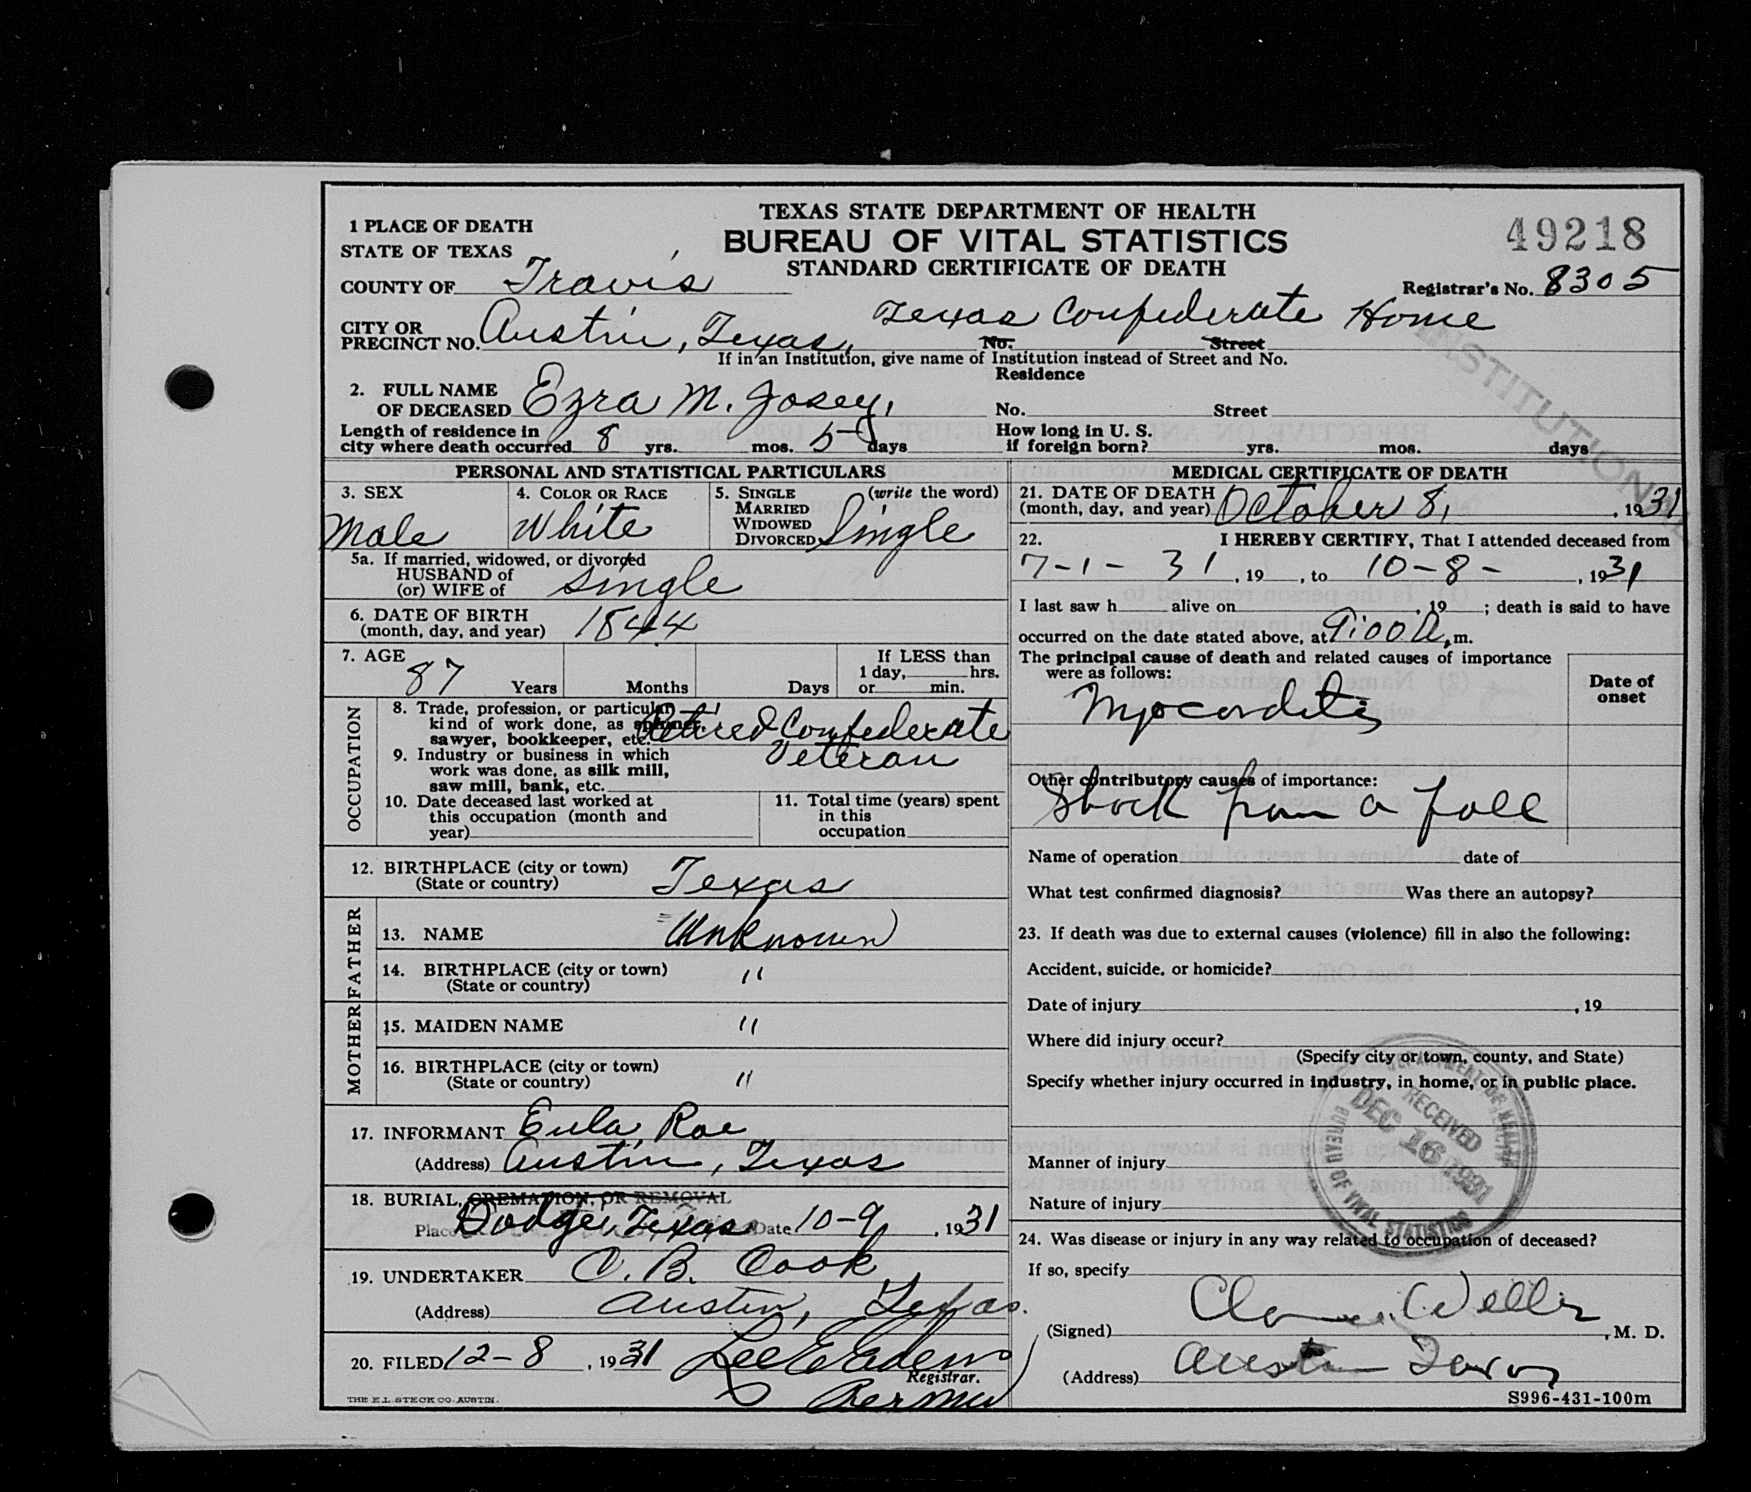 TEXAS STATE DEPARTMENT OF HEALTH
BUREAU OF VITAL STATISTICS
STANDARD CERTIFICATE OF DEATH
49218
1 PLACE OF DEATH
STATE OF TEXAS
COUNTY OF Travis
Registrar's No. 8305
CITY OR PRECINCT NO. Austin, Texas, Texas Confederate Home No. Street
If in an Institution, give name of Institution instead of Street and No.
INSTITUTIONAL
2. FULL NAME OF DECEASED Ezra M. Josey,
Residence No. Street
Length of residence in city where death occurred 8 yrs. mos. 5 days
How long in U. S. if foreign born? yrs. mos. days
PERSONAL AND STATISTICAL PARTICULARS
3. SEX Male
4. COLOR OR RACE White
5. SINGLE MARRIED WIDOWED DIVORCED (write the word) Single
5a. If married, widowed, or divorced
HUSBAND of
(or) WIFE of Single
6. DATE OF BIRTH (month, day, and year) 1844
7. AGE 87 Years Months Days If LESS than 1 day, hrs. or min.
OCCUPATION
8. Trade, profession, or particular kind of work done, as spinner, sawyer, bookkeeper, etc. Retired Confederate
9. Industry or business in which work was done, as silk mill, saw mill, bank, etc. Veteran
10. Date deceased last worked at this occupation (month and year)
11. Total time (years) spent in this occupation
12. BIRTHPLACE (city or town) (State or country) Texas
FATHER
13. NAME Unknown
14. BIRTHPLACE (city or town) (State or country) "
MOTHER
15. MAIDEN NAME "
16. BIRTHPLACE (city or town) (State or country) "
17. INFORMANT Eula Roe
(Address) Austin, Texas
18. BURIAL, CREMATION, OR REMOVAL
Place Dodge, Texas Date 10-9, 1931
19. UNDERTAKER C. B. Cook
(Address) Austin, Texas.
20. FILED 12-8, 1931 Lee E Edens
Registrar.
THE E.L. STECK CO. AUSTIN.
MEDICAL CERTIFICATE OF DEATH
21. DATE OF DEATH (month, day, and year) October 8, 1931
22. I HEREBY CERTIFY, That I attended deceased from
7-1-31, 19 , to 10-8-, 1931
I last saw h alive on , 19 ; death is said to have
occurred on the date stated above, at 9:00 A. m.
The principal cause of death and related causes of importance were as follows:
Date of onset
Myocarditis
Other contributory causes of importance:
Shock from a fall
Name of operation date of
What test confirmed diagnosis? Was there an autopsy?
23. If death was due to external causes (violence) fill in also the following:
Accident, suicide, or homicide?
Date of injury , 19
Where did injury occur?
(Specify city or town, county, and State)
Specify whether injury occurred in industry, in home, or in public place.
Manner of injury
Nature of injury
DEPARTMENT OF HEALTH
RECEIVED
DEC 16 1931
BUREAU OF VITAL STATISTICS
24. Was disease or injury in any way related to occupation of deceased?
If so, specify
(Signed) Weller, M. D.
(Address) Austin Texas
S996-431-100m